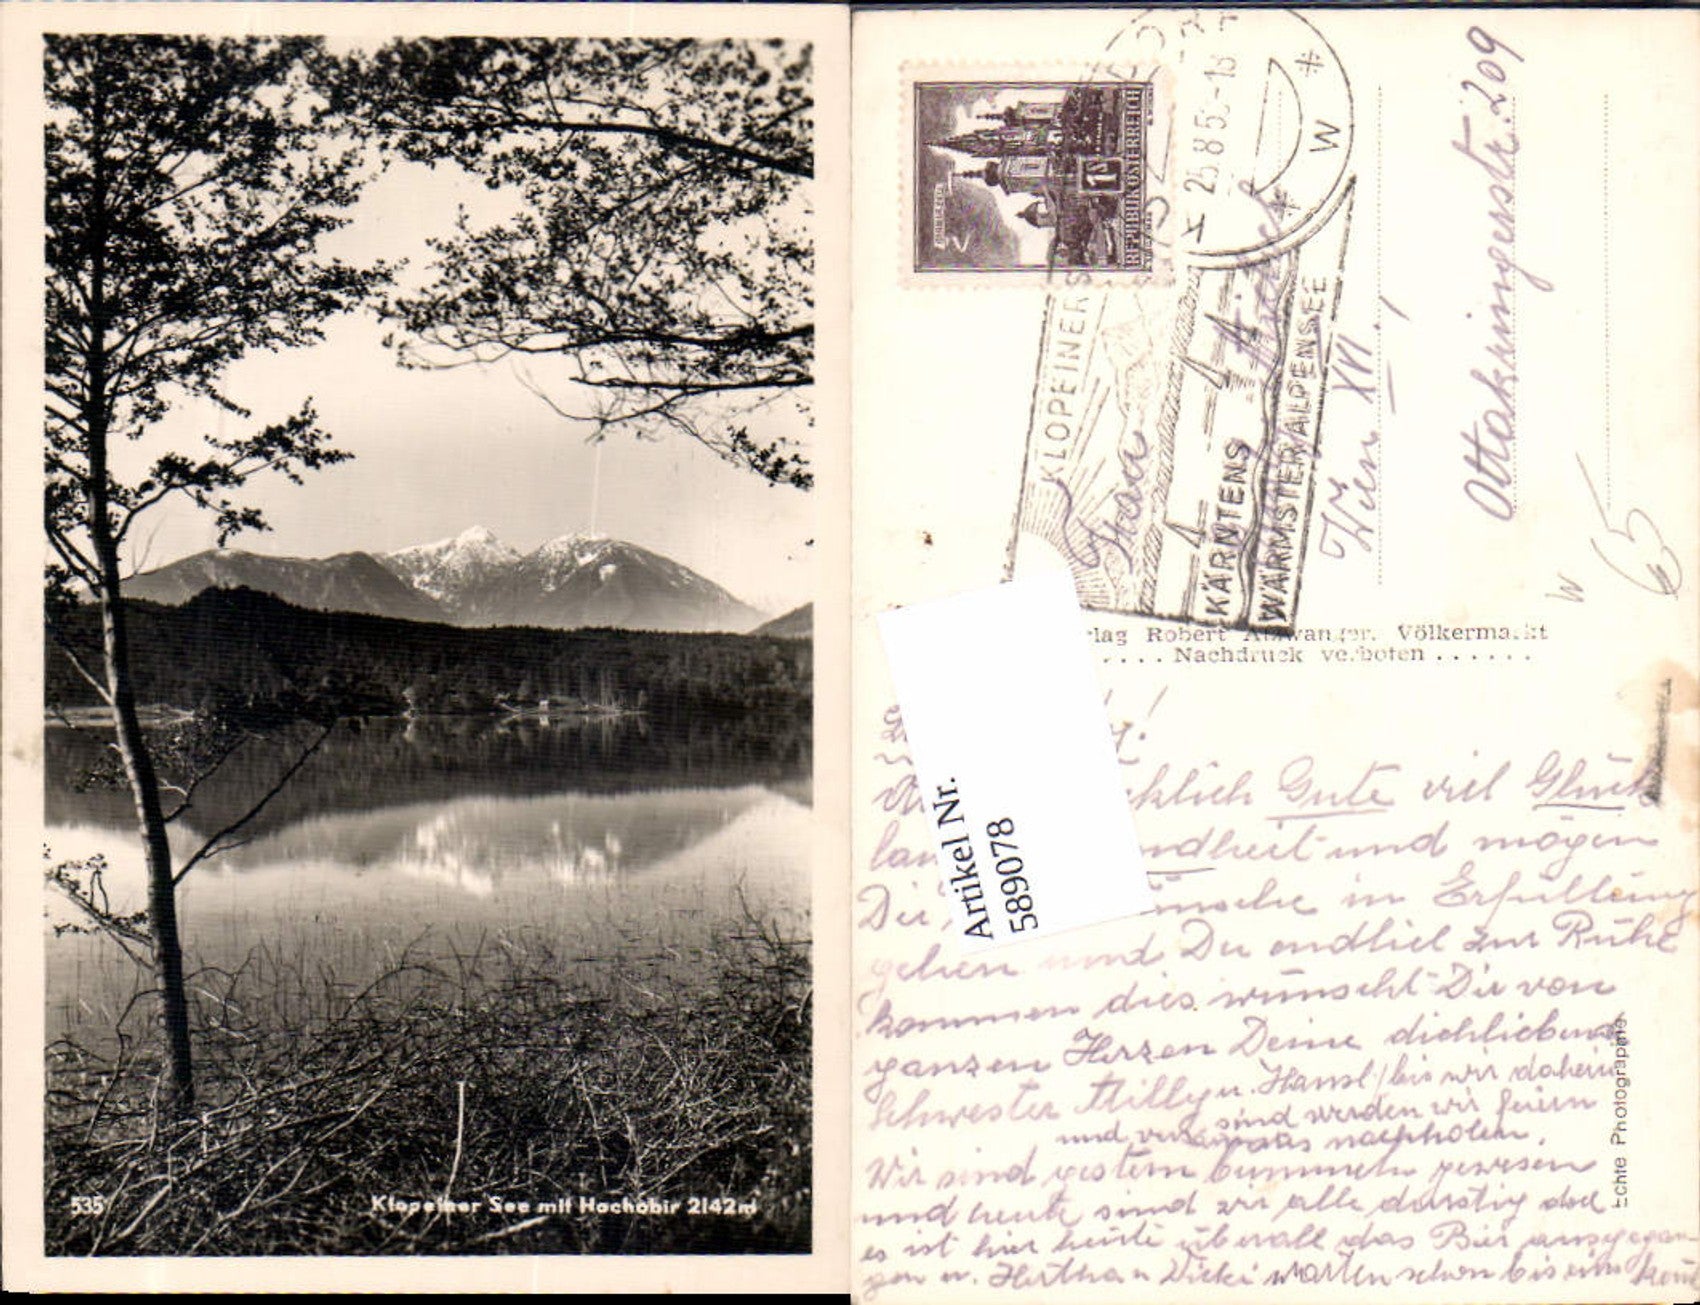 535
Klopeiner See mit Hochobir 2142m
REPUBLIK ÖSTERREICH
1
W
KLOPEINERSEE
KÄRNTENS
WÄRMSTER ALPENSEE
Frau
Wien XVI.!
Ottakringerstr. 209
65
W
rlag Robert Atzwanger, Völkermarkt
..... Nachdruck verboten ......
Artikel Nr.
5889078
klich Gute viel Glück
ndheit und mögen
Dir, ünsche in Erfüllung
gehen und Du endlich zur Ruhe
kommen dies wünscht Dir von
ganzen Herzen Deine dichliebende
Schwester Milly u. Hansl, bis wir daheim
sind werden wir feiern
und nachholen.
Wir sind gestern bummeln gewesen
und heute sind wir alle durstig und
es ist hier heute überall das Bier ausgegan-
gen u. Hertha u Vicki warten schon bis ein
Echte Photographie